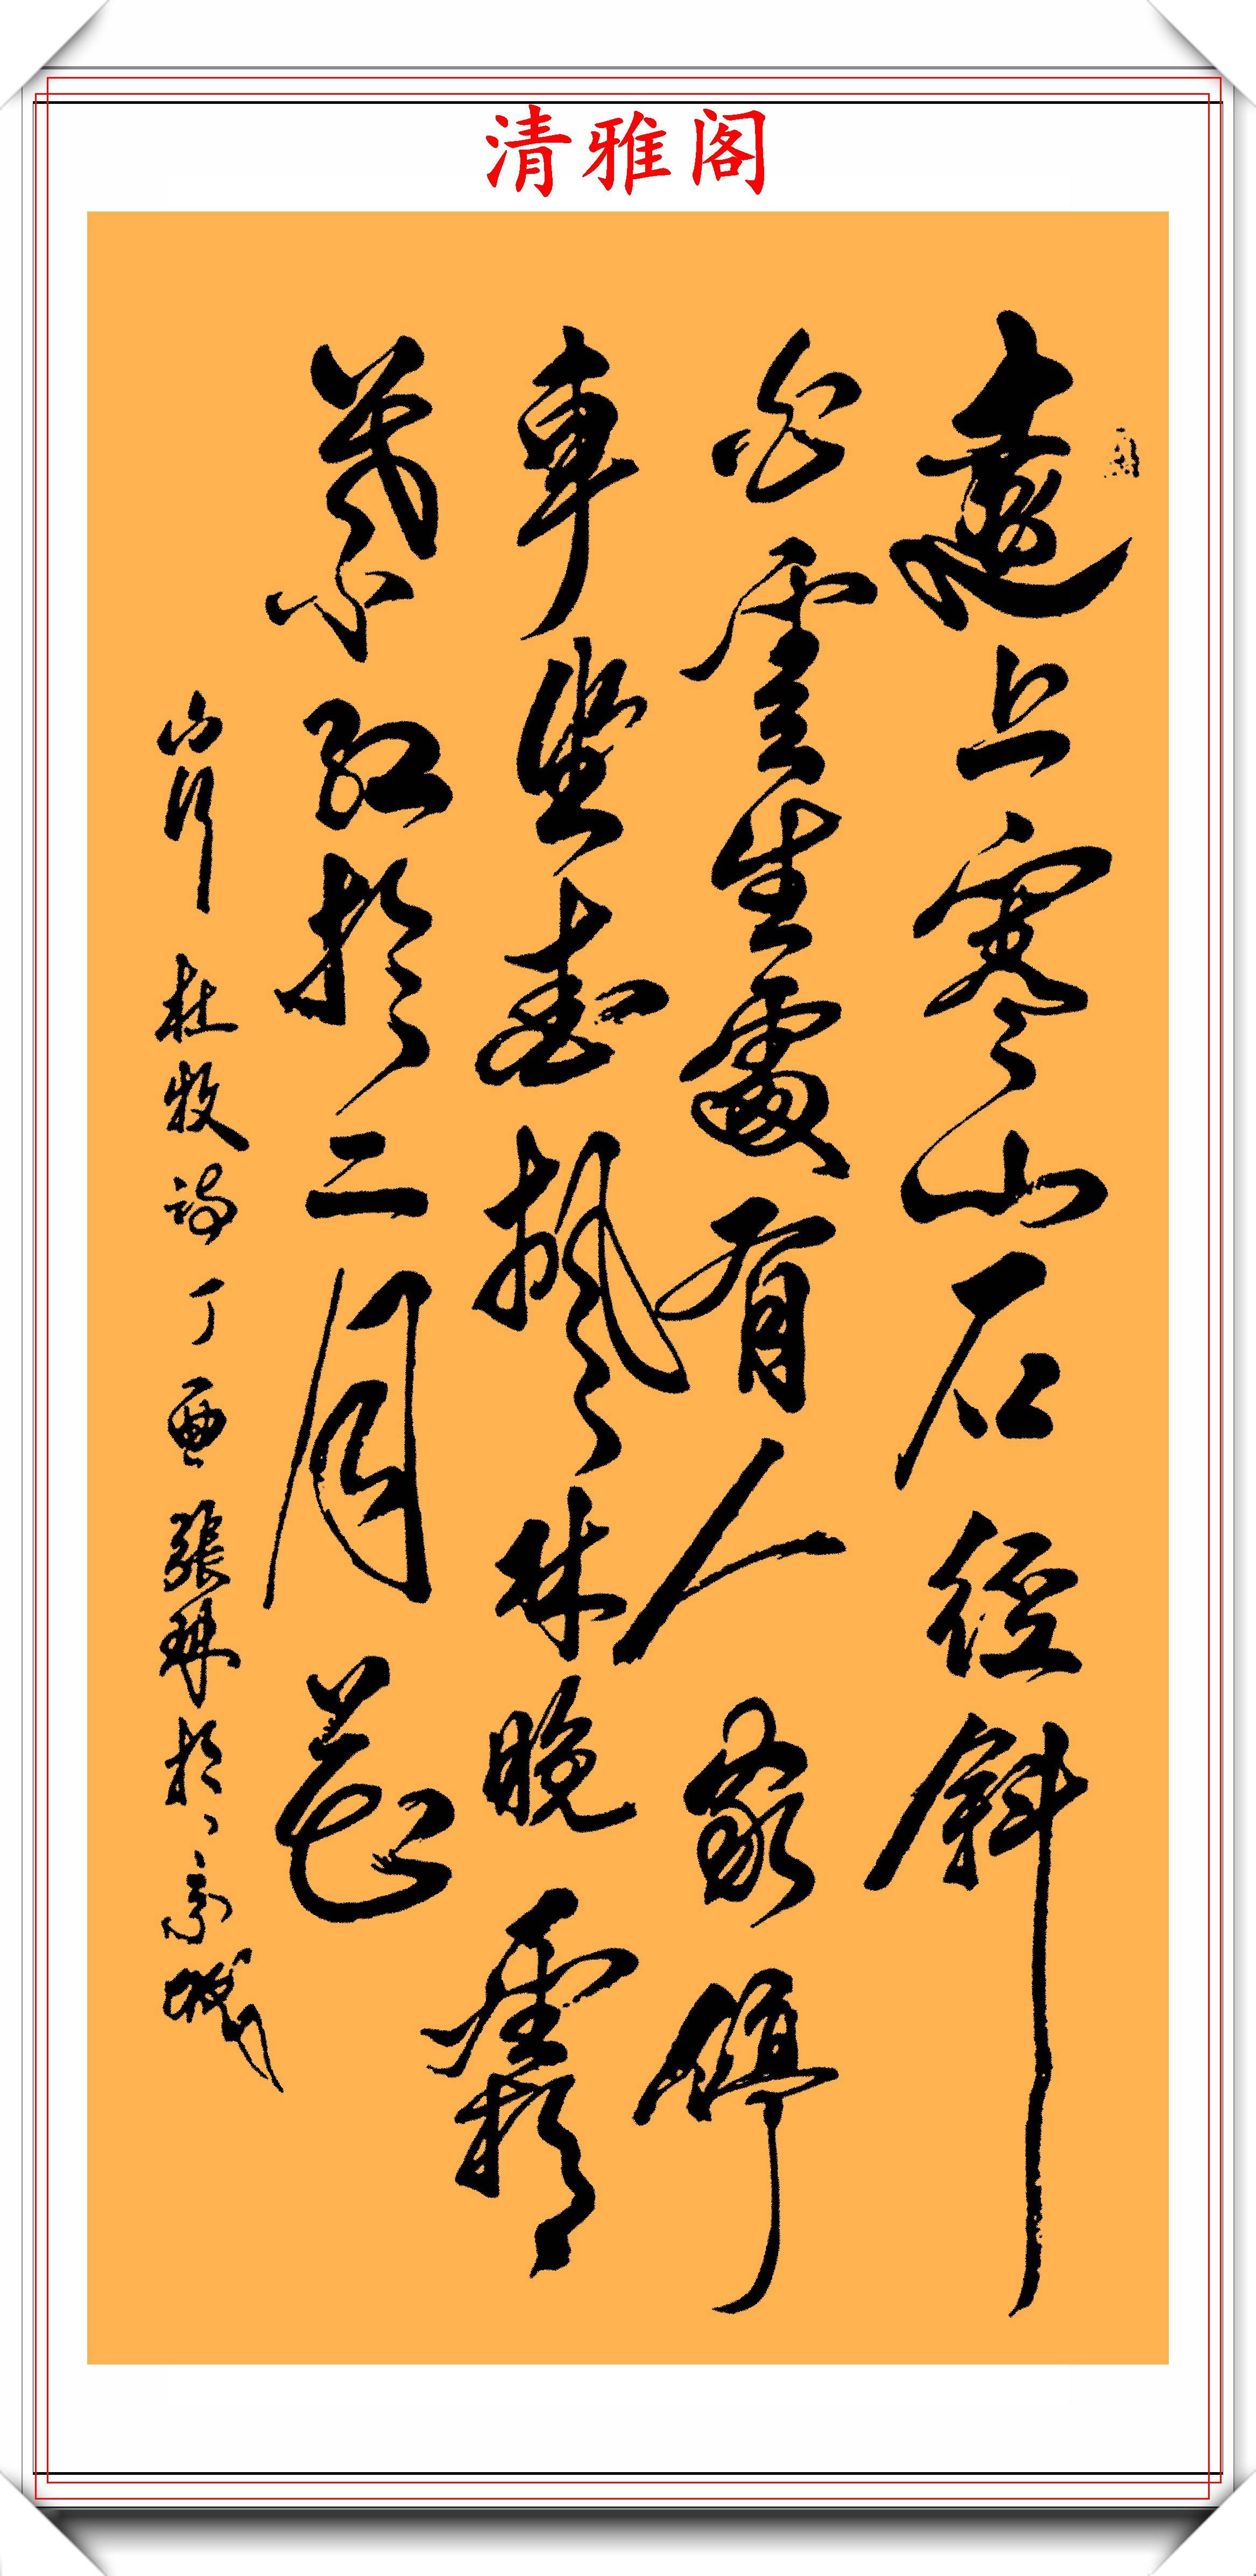 清雅阁
遠上寒山石徑斜
白雲生處有人家停
車坐愛楓林晚霜
葉紅於二月花
山行 杜牧詩 丁酉 張琳於京城